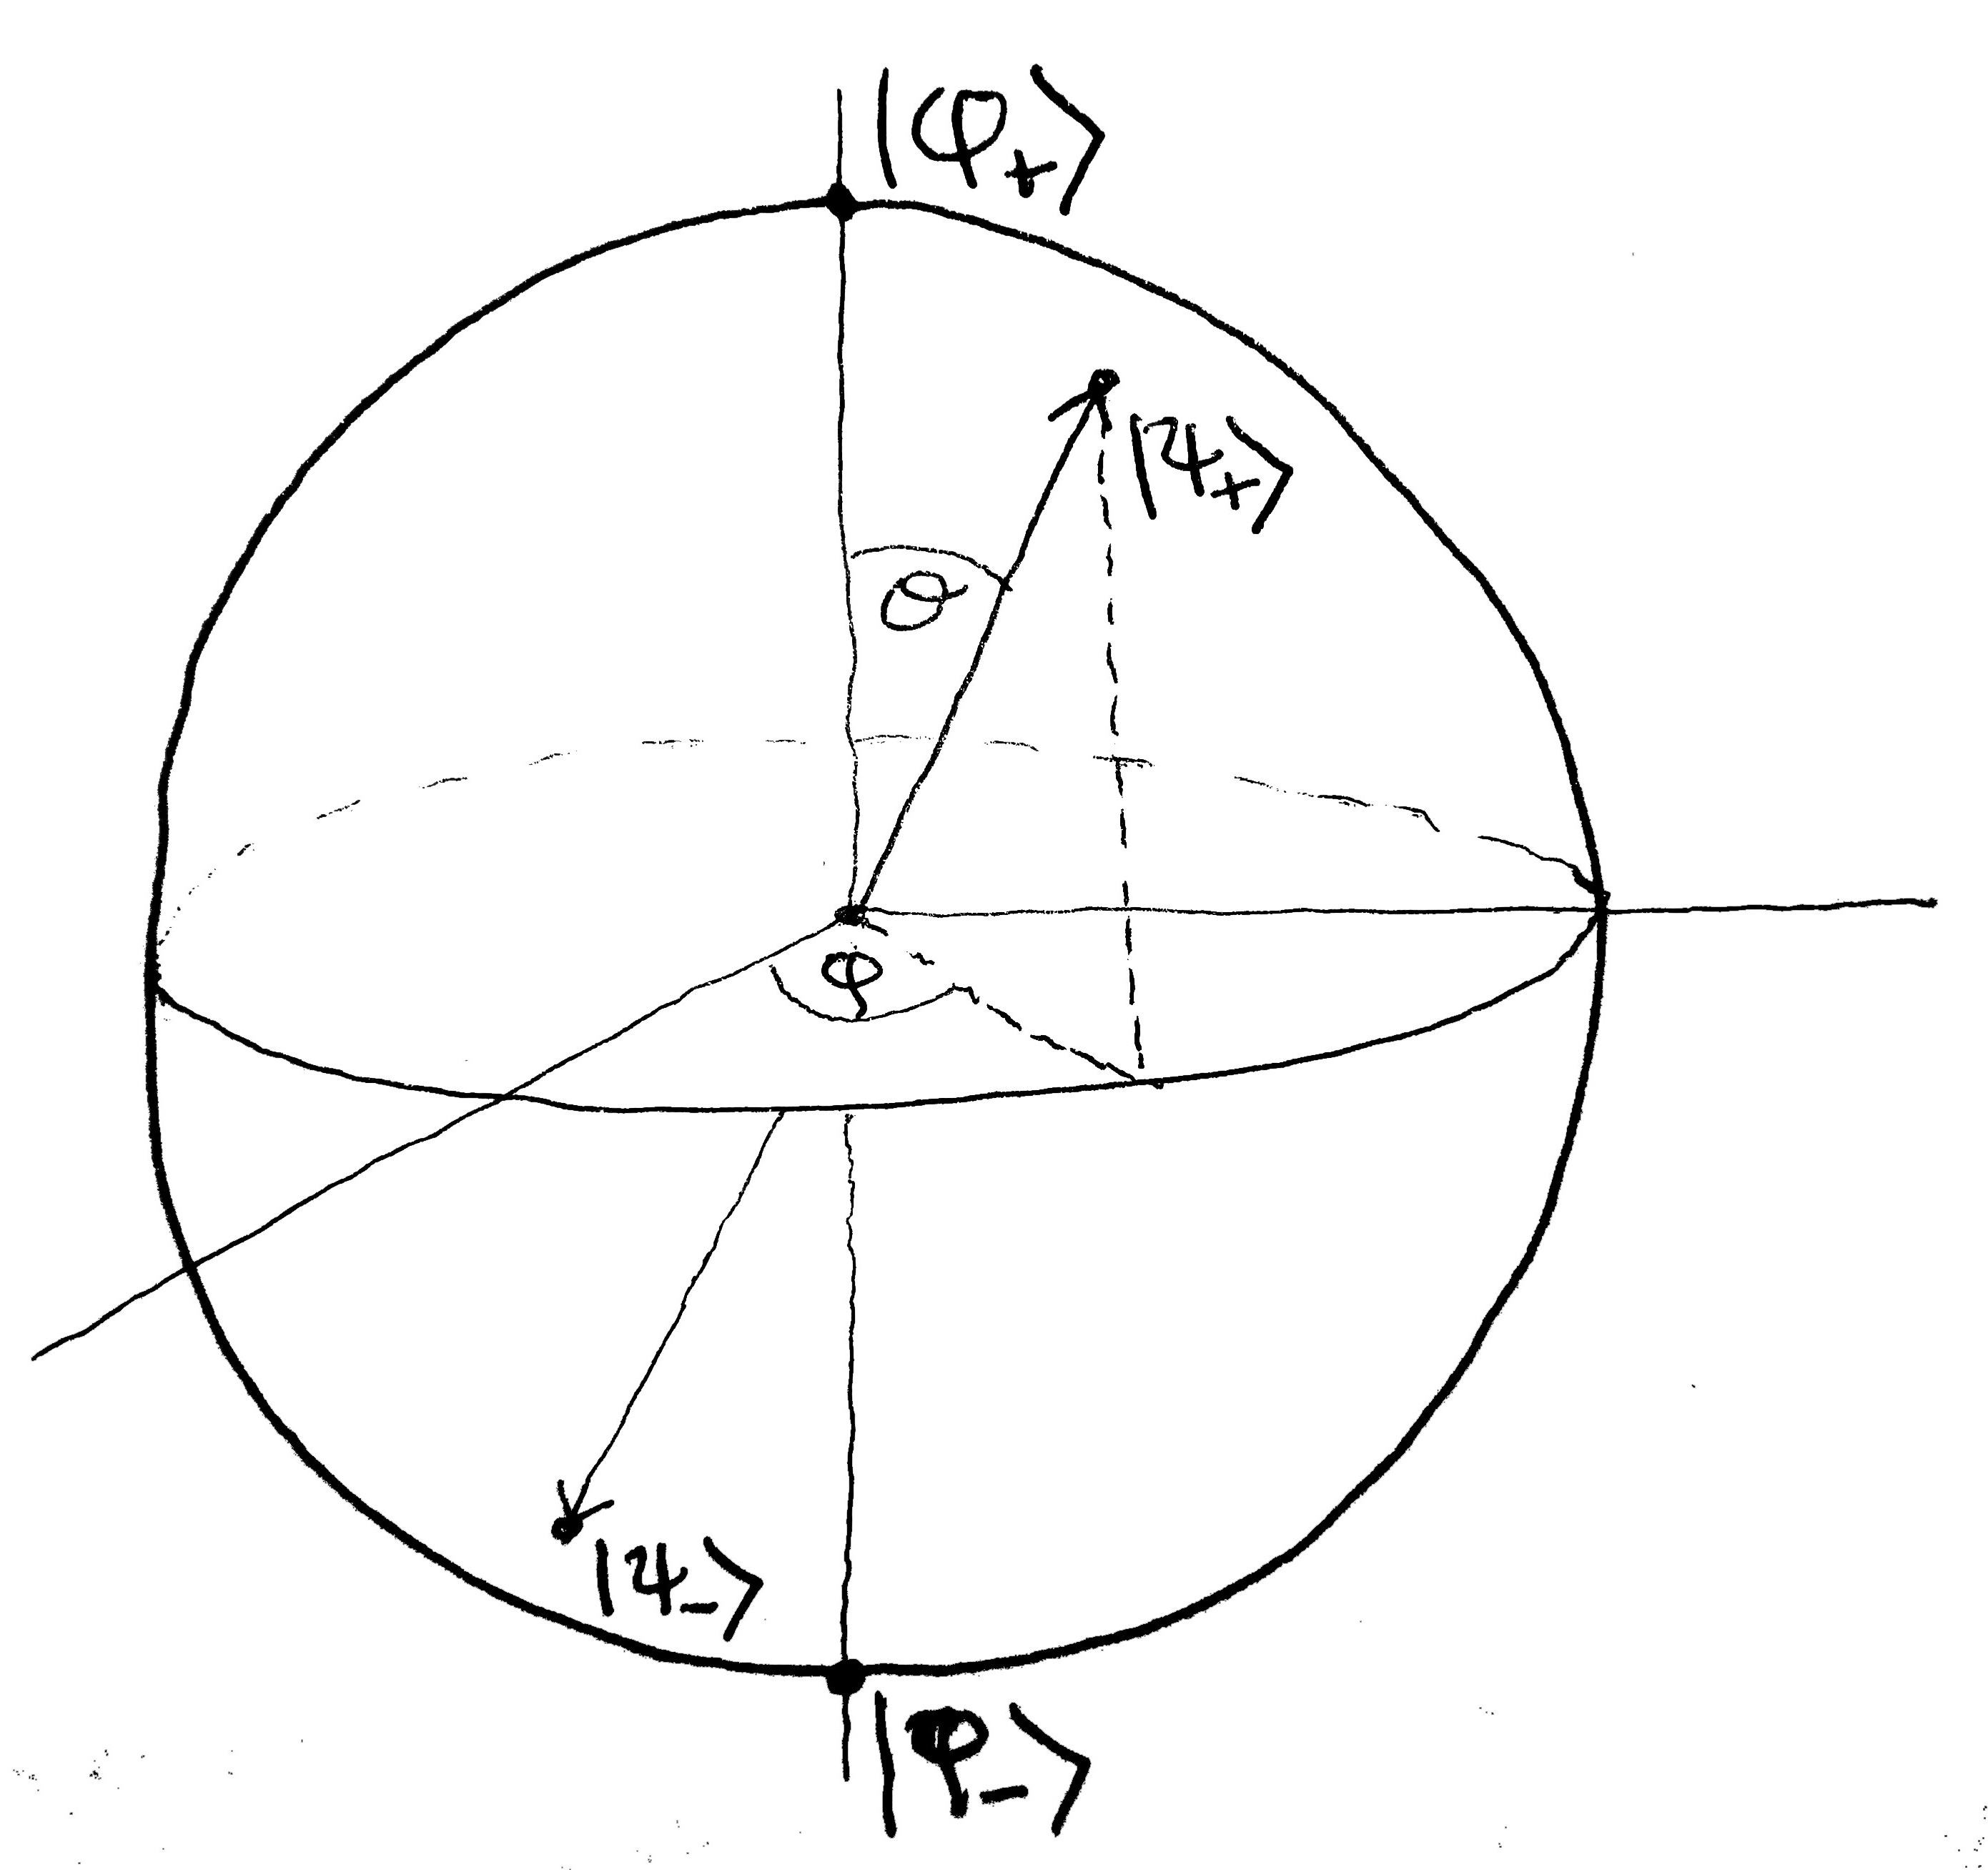 |φ₊⟩
|ψ₊⟩
θ
φ
|ψ₋⟩
|φ₋⟩